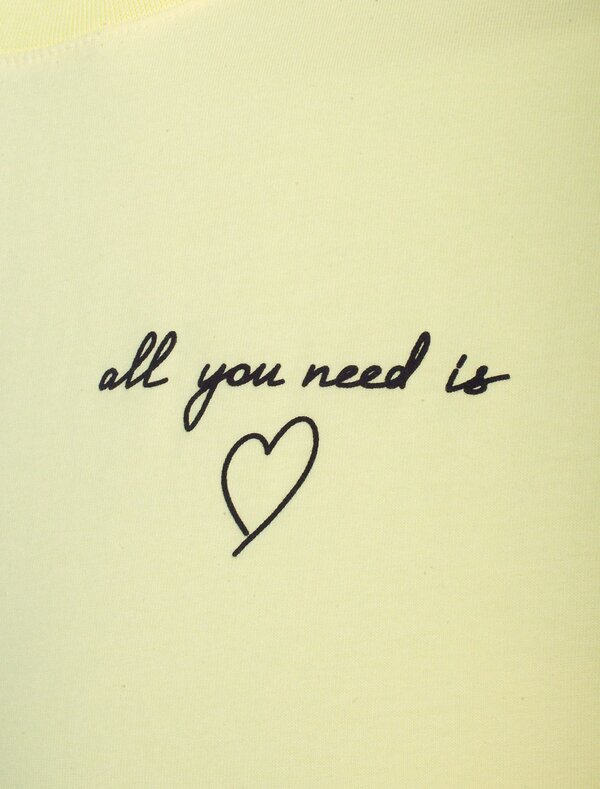 all you need is